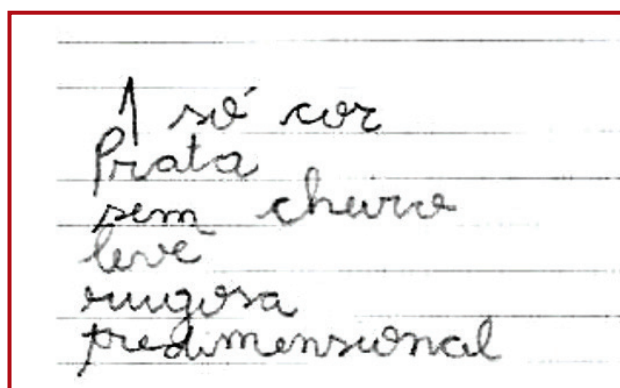 1 só cor
Prata
sem cheiro
leve
rugosa
tredimensional